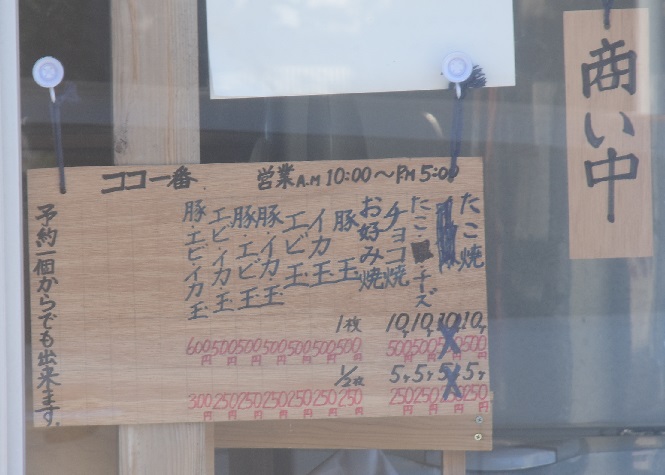 商い中
ココ一番 営業A.M 10:00〜PM 5:00
たこ焼 10ケ 500円 5ケ 250円
10ケ 500円 5ケ 250円
たこ・チーズ 10ケ 500円 5ケ 250円
チョコ焼 10ケ 500円 5ケ 250円
お好み焼 1枚 1/2枚
豚玉 500円 250円
イカ玉 500円 250円
エビ玉 500円 250円
豚・イカ玉 500円 250円
豚・エビ玉 500円 250円
エビ・イカ玉 500円 250円
豚・エビ・イカ玉 600円 300円
予約一個からでも出来ます。